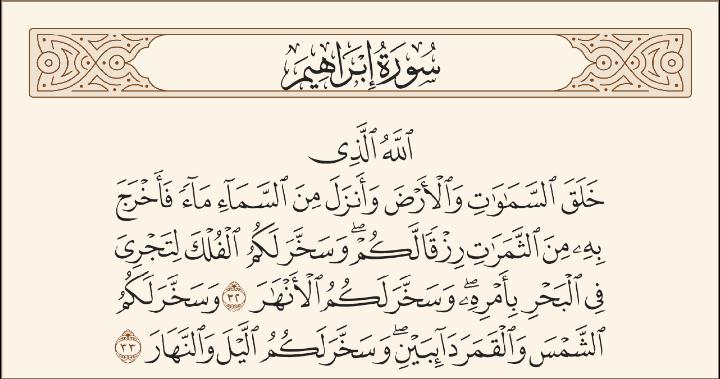 سُورَةُ إِبْرَاهِيمَ
ٱللَّهُ ٱلَّذِى
خَلَقَ ٱلسَّمَٰوَٰتِ وَٱلْأَرْضَ وَأَنزَلَ مِنَ ٱلسَّمَآءِ مَآءً فَأَخْرَجَ
بِهِۦ مِنَ ٱلثَّمَرَٰتِ رِزْقًا لَّكُمْ ۖ وَسَخَّرَ لَكُمُ ٱلْفُلْكَ لِتَجْرِىَ
فِى ٱلْبَحْرِ بِأَمْرِهِۦ ۖ وَسَخَّرَ لَكُمُ ٱلْأَنْهَٰرَ ٣٢ وَسَخَّرَ لَكُمُ
ٱلشَّمْسَ وَٱلْقَمَرَ دَآئِبَيْنِ ۖ وَسَخَّرَ لَكُمُ ٱلَّيْلَ وَٱلنَّهَارَ ٣٣